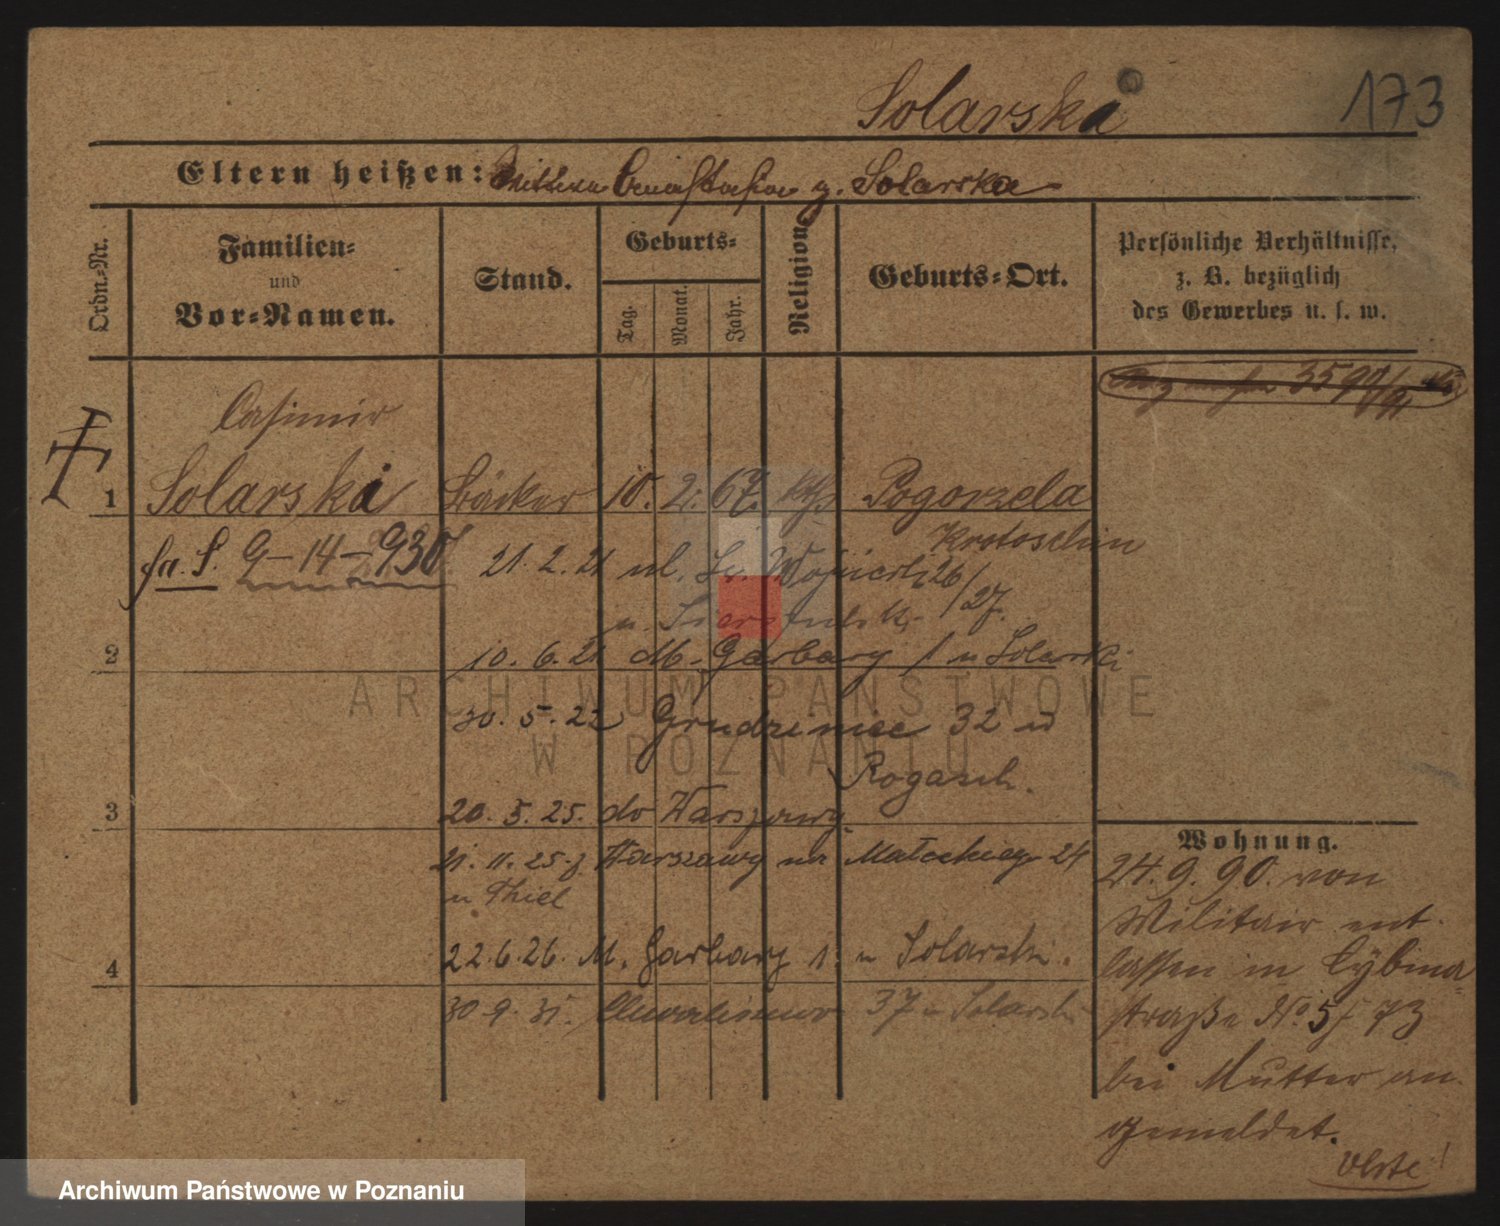 173
Solarski
Eltern heißen: g. Solarska
Ordn.-Nr.
Familien-
und
Vor-Namen.
Stand.
Geburts-
Tag.
Monat.
Jahr.
Religion
Geburts-Ort.
Persönliche Verhältnisse,
z. B. bezüglich
des Gewerbes u. s. w.
3590/91
Casimir
1 Solarski Bäcker 10. 2. 67. kth Pogorzela
Krotoschin
fa. S. G-14-930
21.2.21 ul. Św. 26/27
u.
2
10.6.21 M. Garbary 1 u Solarski
30.5.22 Grudzieniec 32 u
Rogasch.
3
20.5.25. do Warszawy
21.11.25 z Warszawy na Małeckiego 24
u Thiel
4
22.6.26. M. Garbary 1. u Solarski.
30 9. 31. 37 u Solarski
Wohnung.
24.9.90. von
Militair ent-
lassen in Cybina-
straße No 5 / 73
bei Mutter an-
gemeldet.
verte!
ARCHIWUM PAŃSTWOWE
W POZNANIU
Archiwum Państwowe w Poznaniu